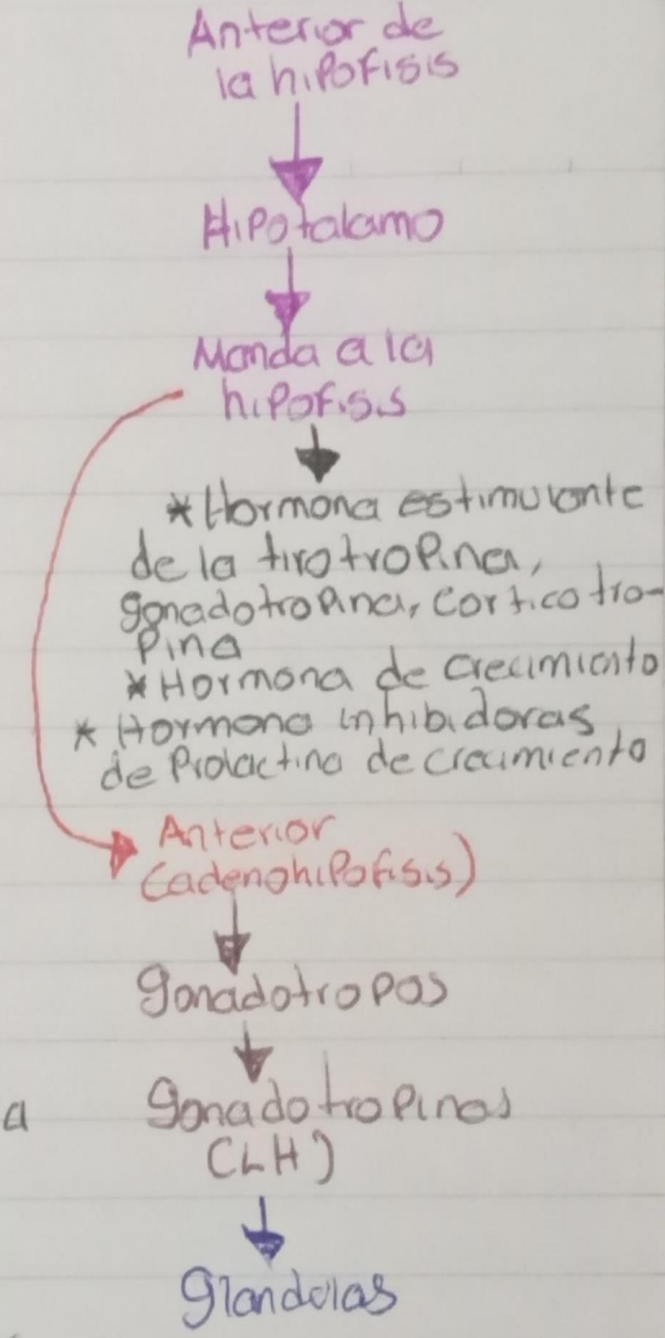 Anterior de
la hipofisis
Hipotalamo
Manda a la
hipofisis
* Hormona estimulante
de la tirotropina,
gonadotropina, corticotro-
pina
* Hormona de crecimiento
* Hormona inhibidoras
de Prolactina de crecimiento
Anterior
(adenohipofisis)
gonadotropos
a
gonadotropinas
(LH)
glandulas